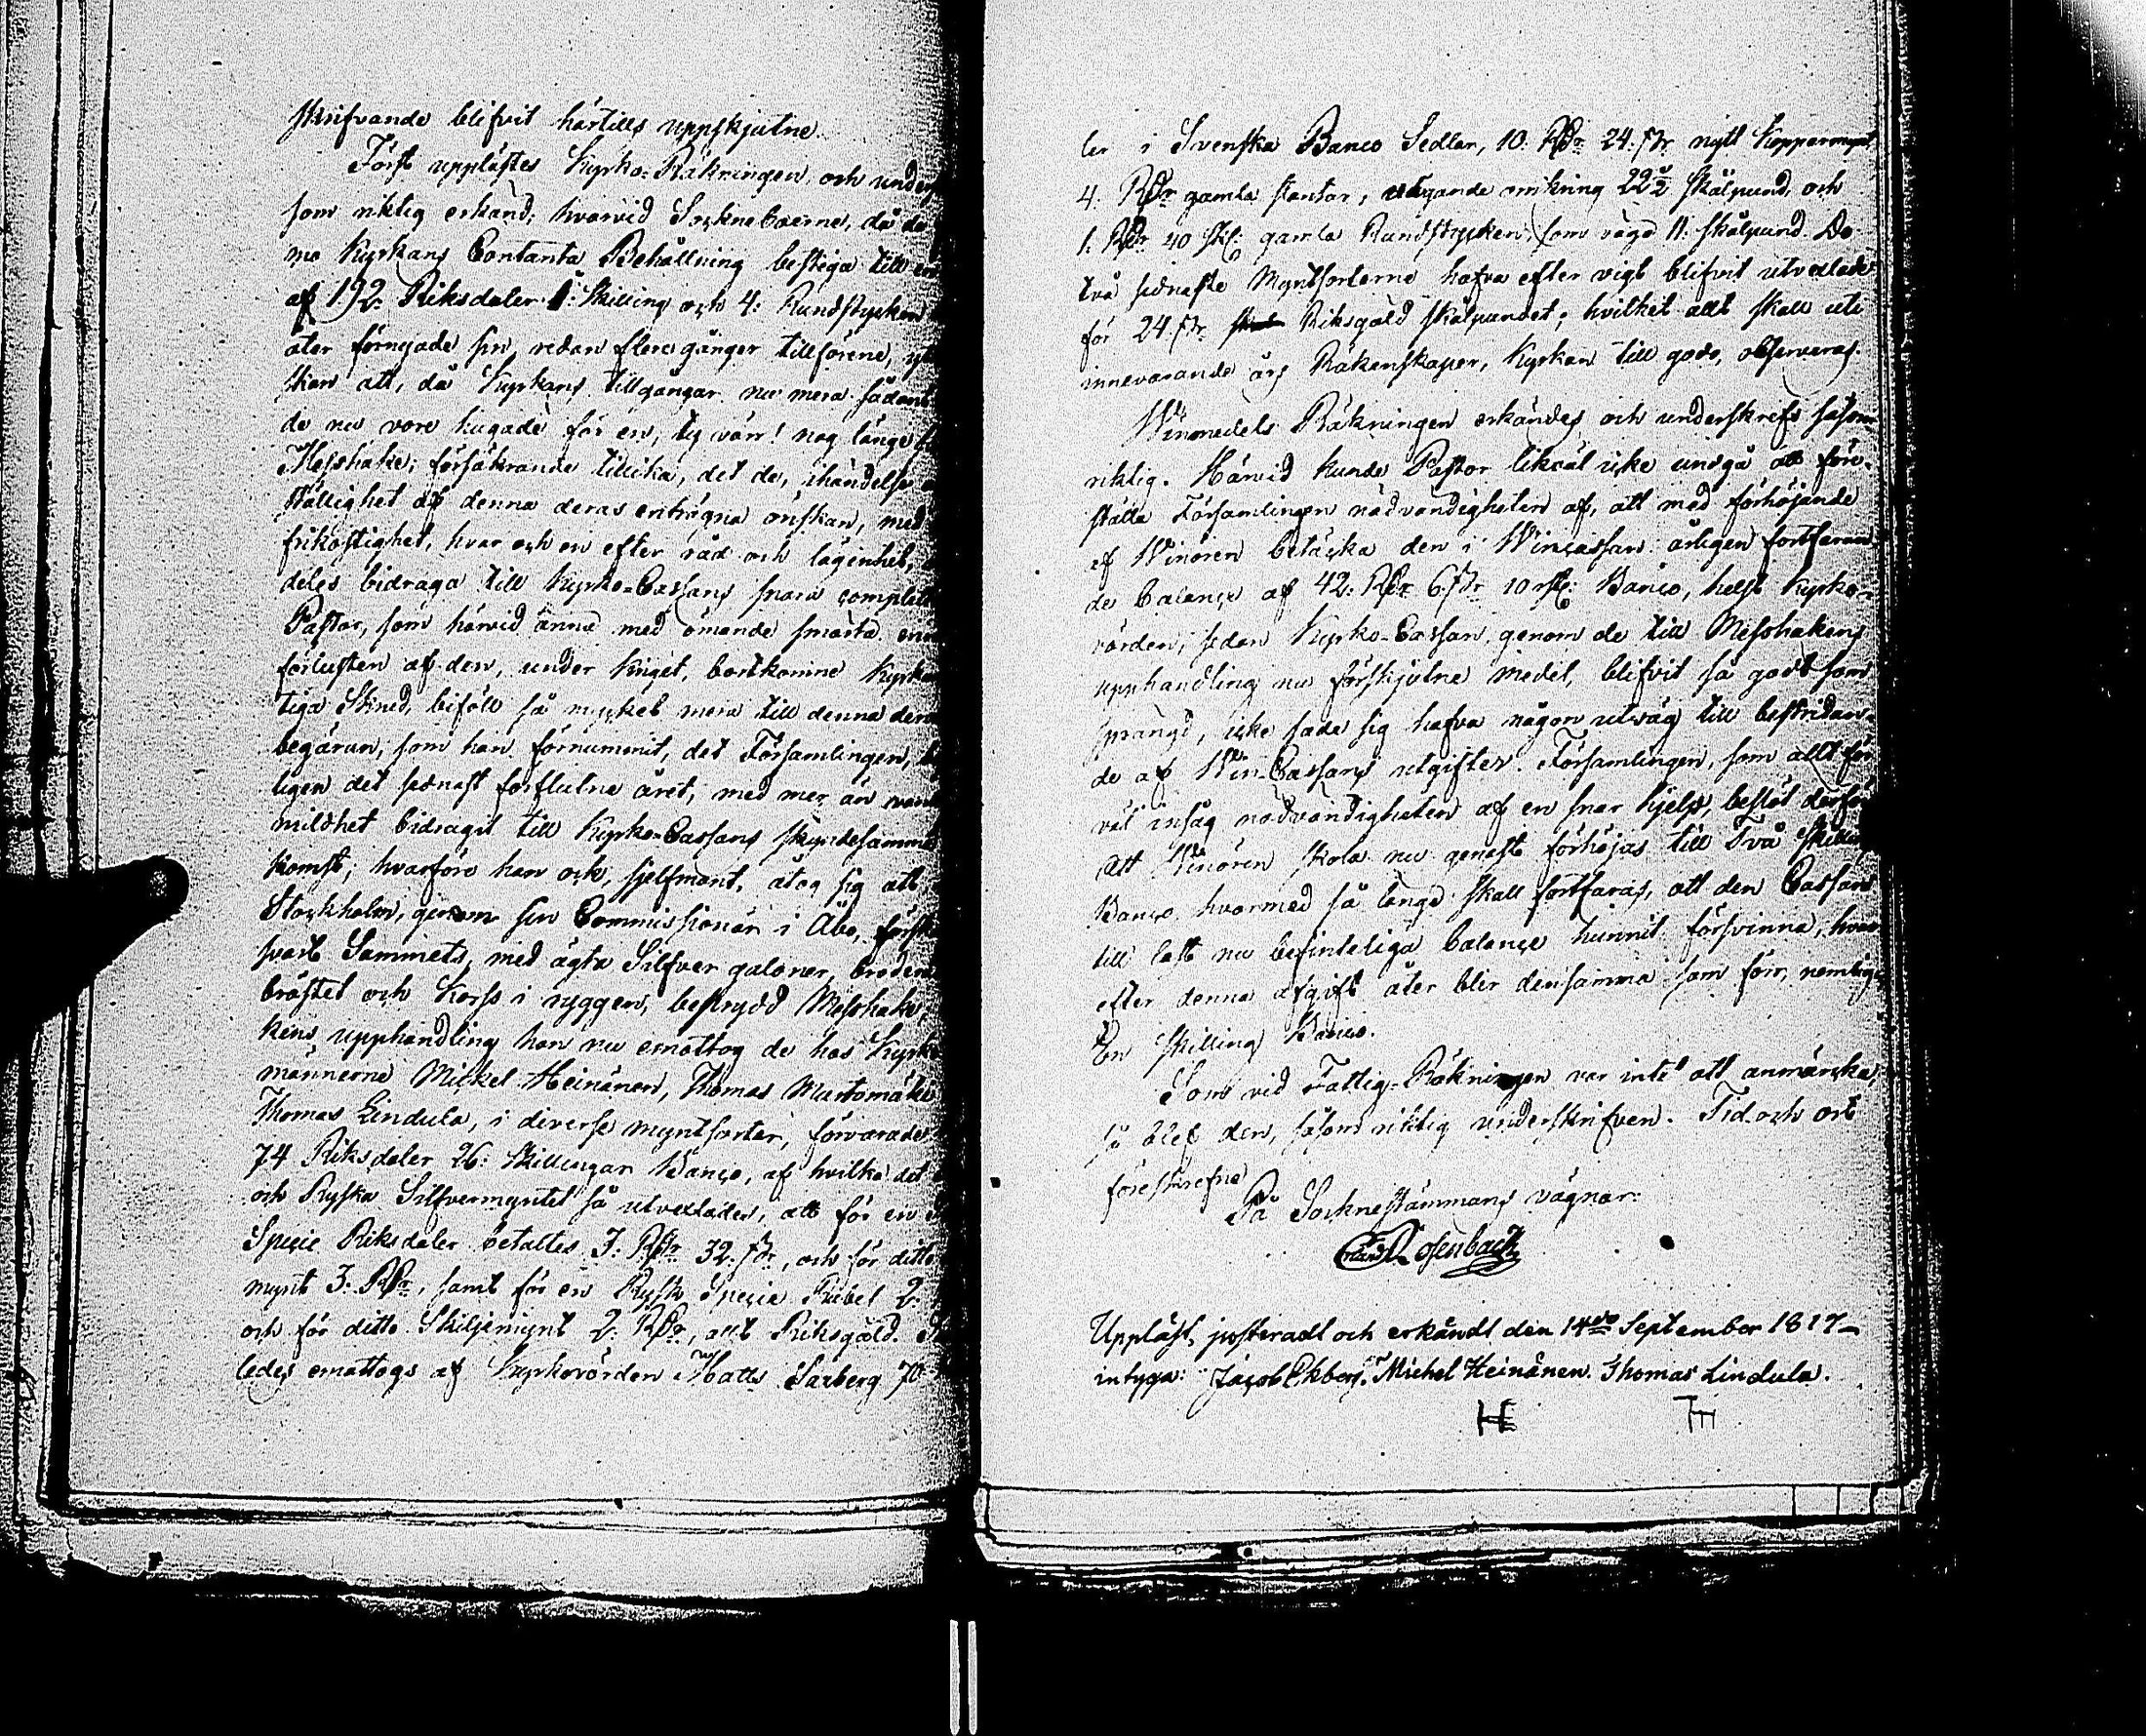 skrifvande blifvit härtills uppskjutne.
Först upplästes Kyrko-Räkningen, och under
som riktig erkänd; hvarvid Sockneboerne, då de
ma Kyrkans Contanta Behållning bestiga till en
af 192. Riksdaler 1. Skilling och 4. Rundstycken
åter förnyade sin redan flere gånger tillförene,
skan att, då Kyrkans tillgångar nu mera sådant
de nu vore hugade för en, ty värr! nog länge
Messhake; försäkrande tillika, det de, i händelse
fällighet af denna deras enträgna önskan, med
frikostighet, hvar och en efter råd och lägenhet,
deles bidraga till Kyrko-Cassans snara complet
Pastor, som härvid ännu med ömande smärta
förlusten af den, under kriget, bortkomne Kyrko
tiga Skrud, biföll så mycket mera till denna dera
begäran, som han förnummit, det Församlingen,
ligen det sednast förflutne året, med mer än van
mildhet bidragit till Kyrko-Cassans skyndesamma
komst; hvarföre han ock, sjelfmant, åtog sig att
Stockholm, genom sin Commissionär i Åbo, förska
svart Sammets, med ägta Silfver galoner, brodera
bröstet och Korss i ryggen, beprydd Messhake,
kens upphandling han nu emottog de hos Kyrko
männerne Mickel Heinänen, Thomas Murtomäki
Thomas Lindula, i diverse myntsorter, förvarade
74 Riksdaler 26. Skillingar Banco, af hvilka det
och Ryska Silfvermyntet så utvexlades, att för en
Specie Riksdaler betaltes 3. RDr 32. sr., och för ditto
mynt 3. RDr, samt för en Rysk Specie Rubel 2.
och för ditto Skiljemynt 2. RDr, allt Riksgäld.
ledes emottogs af Kyrkovärden Matts Saxberg 70
ler i Svenska Banco Sedlar, 10. RDr 24. sr. nytt Kopparmynt
4. RDr gamla slantar, vägande omkring 22 1/2 skålpund, och
1. RDr 40 sk: gamla Rundstycken, som vägo 11. skålpund. De
två sednaste Myntsorterne hafva efter vigt blifvit utvexlade
för 24. sr. Riksgäld skålpundet; hvilket allt skall uti
innevarande års Räkenskaper, Kyrkan till godo, observeras.
Winmedels Räkningen erkändes och underskrefs såsom
riktig. Härvid kunde Pastor likväl icke undgå att före-
ställa Församlingen nödvändigheten af, att med förhöjande
af Winören betäcka den i Wincassan årligen fortfaran-
de balance af 42. RDr 6. sr. 10 Banco, helst Kyrko-
värden, sedan Kyrko-Cassan, genom de till Messhakens
upphandling nu förskjutne medel, blifvit så godt som
sprängd, icke sade sig hafva någon utväg till bestridan-
de af Win-Cassans utgifter. Församlingen, som allt för
väl insåg nödvändigheten af en snar hjelp, beslöt derföre
att Winören skola nu genast förhöjas till Två Skilling
Banco, hvarmed så länge skall fortfaras, att den Cassan
till last nu befinteliga balance hunnit försvinna, hvar
efter denna afgift åter blir densamma som förr, nemligen
En Skilling Banco.
Som vid Fattig-Räkningen var intet att anmärcka,
så blef den, såsom riktig underskrifven. Tid och ort
föreskrefne
På Socknestämmans vägnar:
Rosenbach
Uppläst, justeradt och erkändt den 14de September 1817
intyga: Jacob Ekberg. Michel Heinänen. Thomas Lindula.